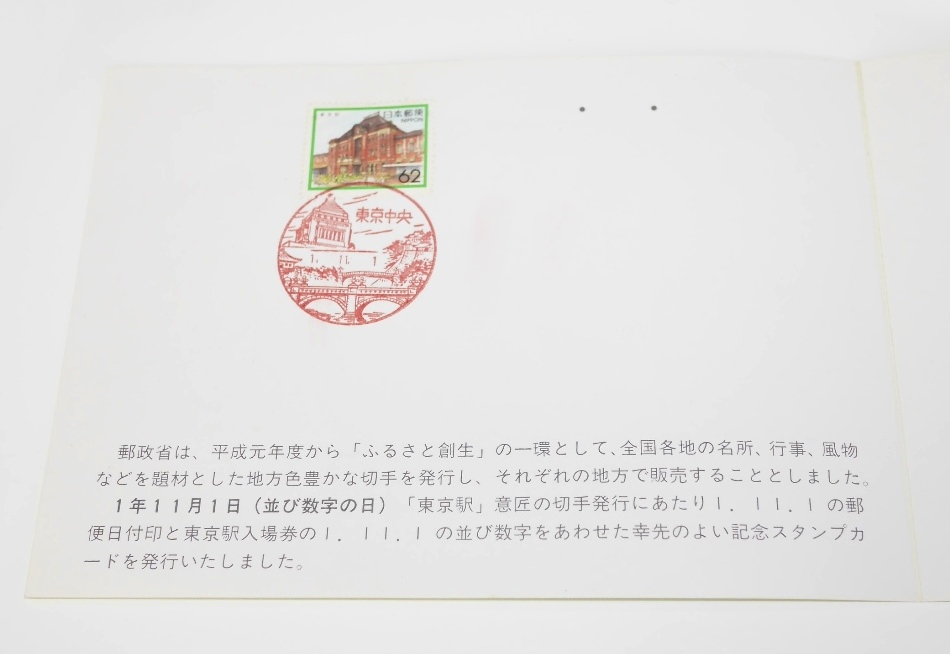 日本郵便
NIPPON
62
東京中央
1. 11. 1
郵政省は、平成元年度から「ふるさと創生」の一環として、全国各地の名所、行事、風物
などを題材とした地方色豊かな切手を発行し、それぞれの地方で販売することとしました。
1年11月1日（並び数字の日）「東京駅」意匠の切手発行にあたり1. 11. 1の郵
便日付印と東京駅入場券の1. 11. 1 の並び数字をあわせた幸先のよい記念スタンプカ
ードを発行いたしました。